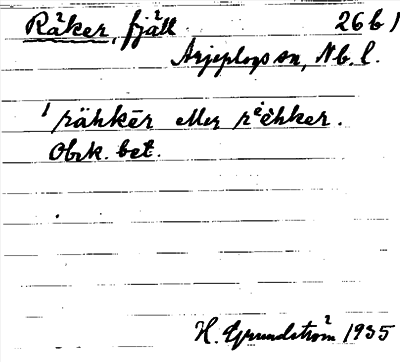 Räker, fjäll 26 b 1
Arjeplogs sn, Nb. l.
rähkēr eller rēhker.
Obek. bet.
H. Grundström 1935